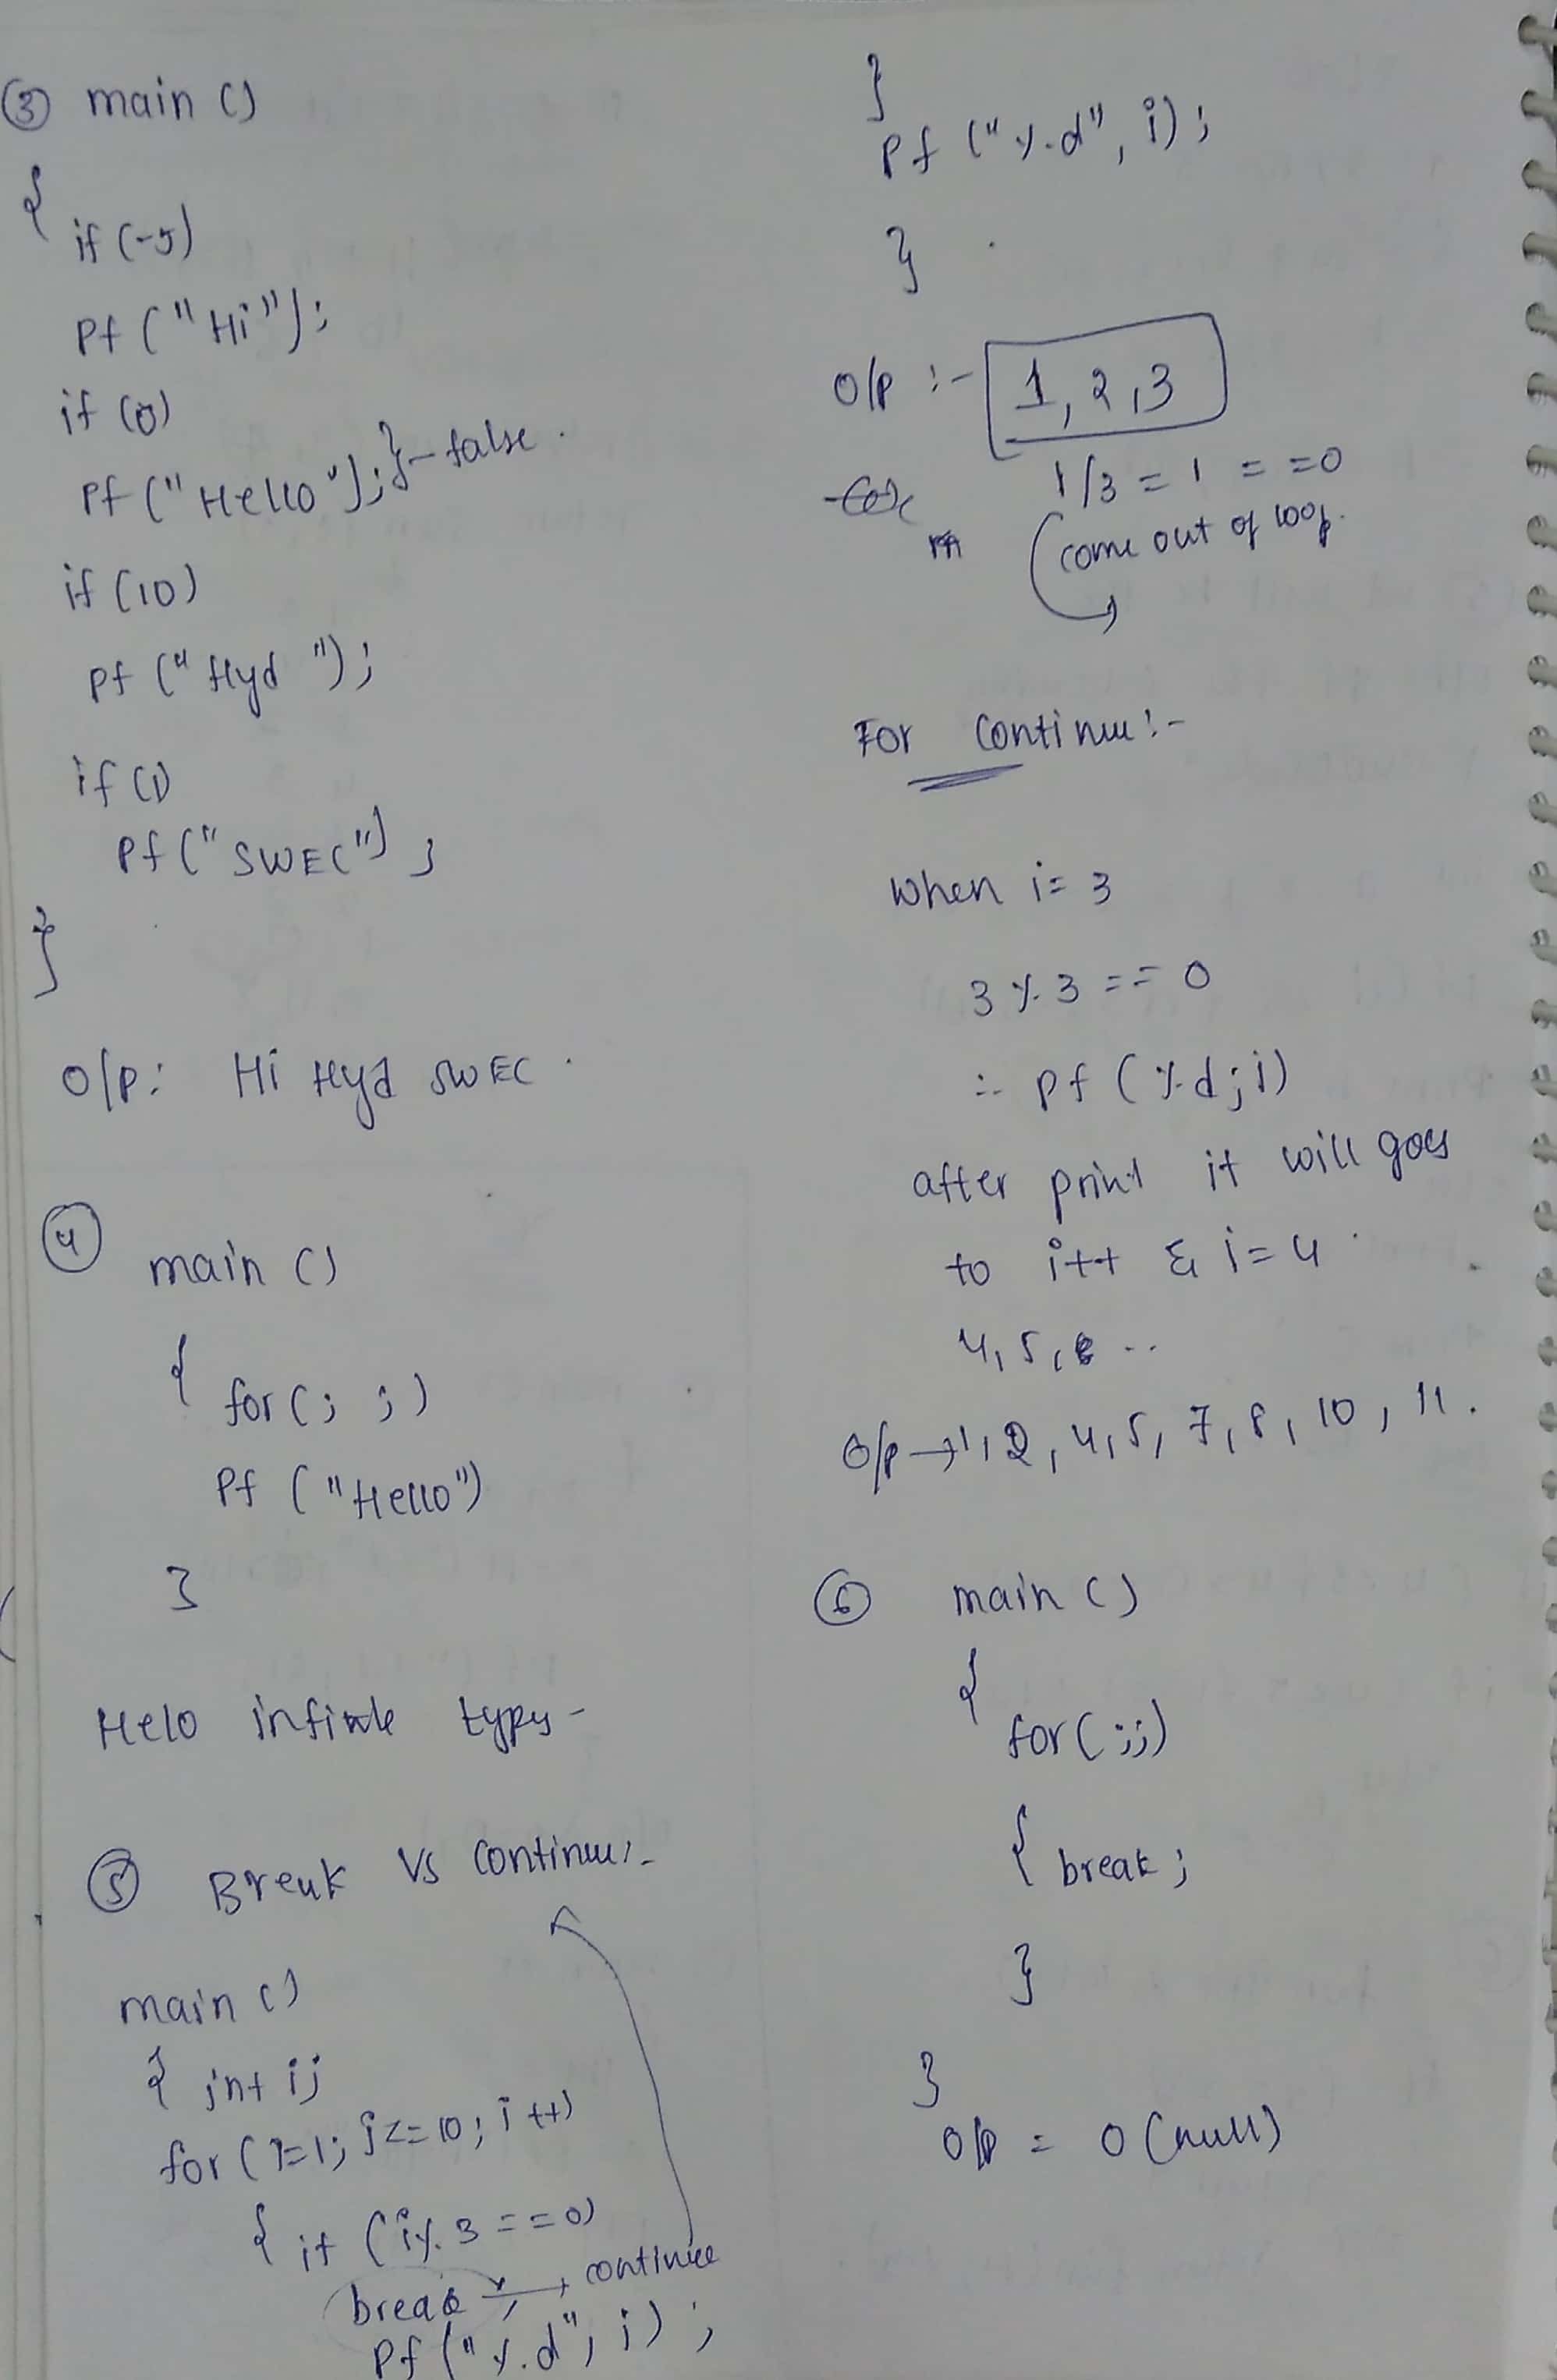 ③ main ()
{
if (-5)
Pf ("Hi");
if (0)
Pf ("Hello"); } - false.
if (10)
Pf ("Hyd");
if (1)
Pf ("SWEC");
}
O/p: Hi Hyd SWEC.
④ main ()
{ for (; ;)
Pf ("Hello")
}
Helo infinite types-
⑤ Break Vs Continue:-
main ()
{ int i;
for (i=1; i<=10; i++)
{ if (i%3 ==0)
break; → continue
Pf ("%d", i);
}
Pf ("%d", i);
}
O/p :- 1, 2, 3
1/3 = 1 = =0
come out of loop.
For Continue:-
when i= 3
3 % 3 == 0
∴ Pf (%d; i)
after print it will goes
to i++ & i=4
4, 5, 6 ..
O/p → 1, 2, 4, 5, 7, 8, 10, 11.
⑥ main ()
{
for (;;)
{ break;
}
}
O/p = 0 (null)